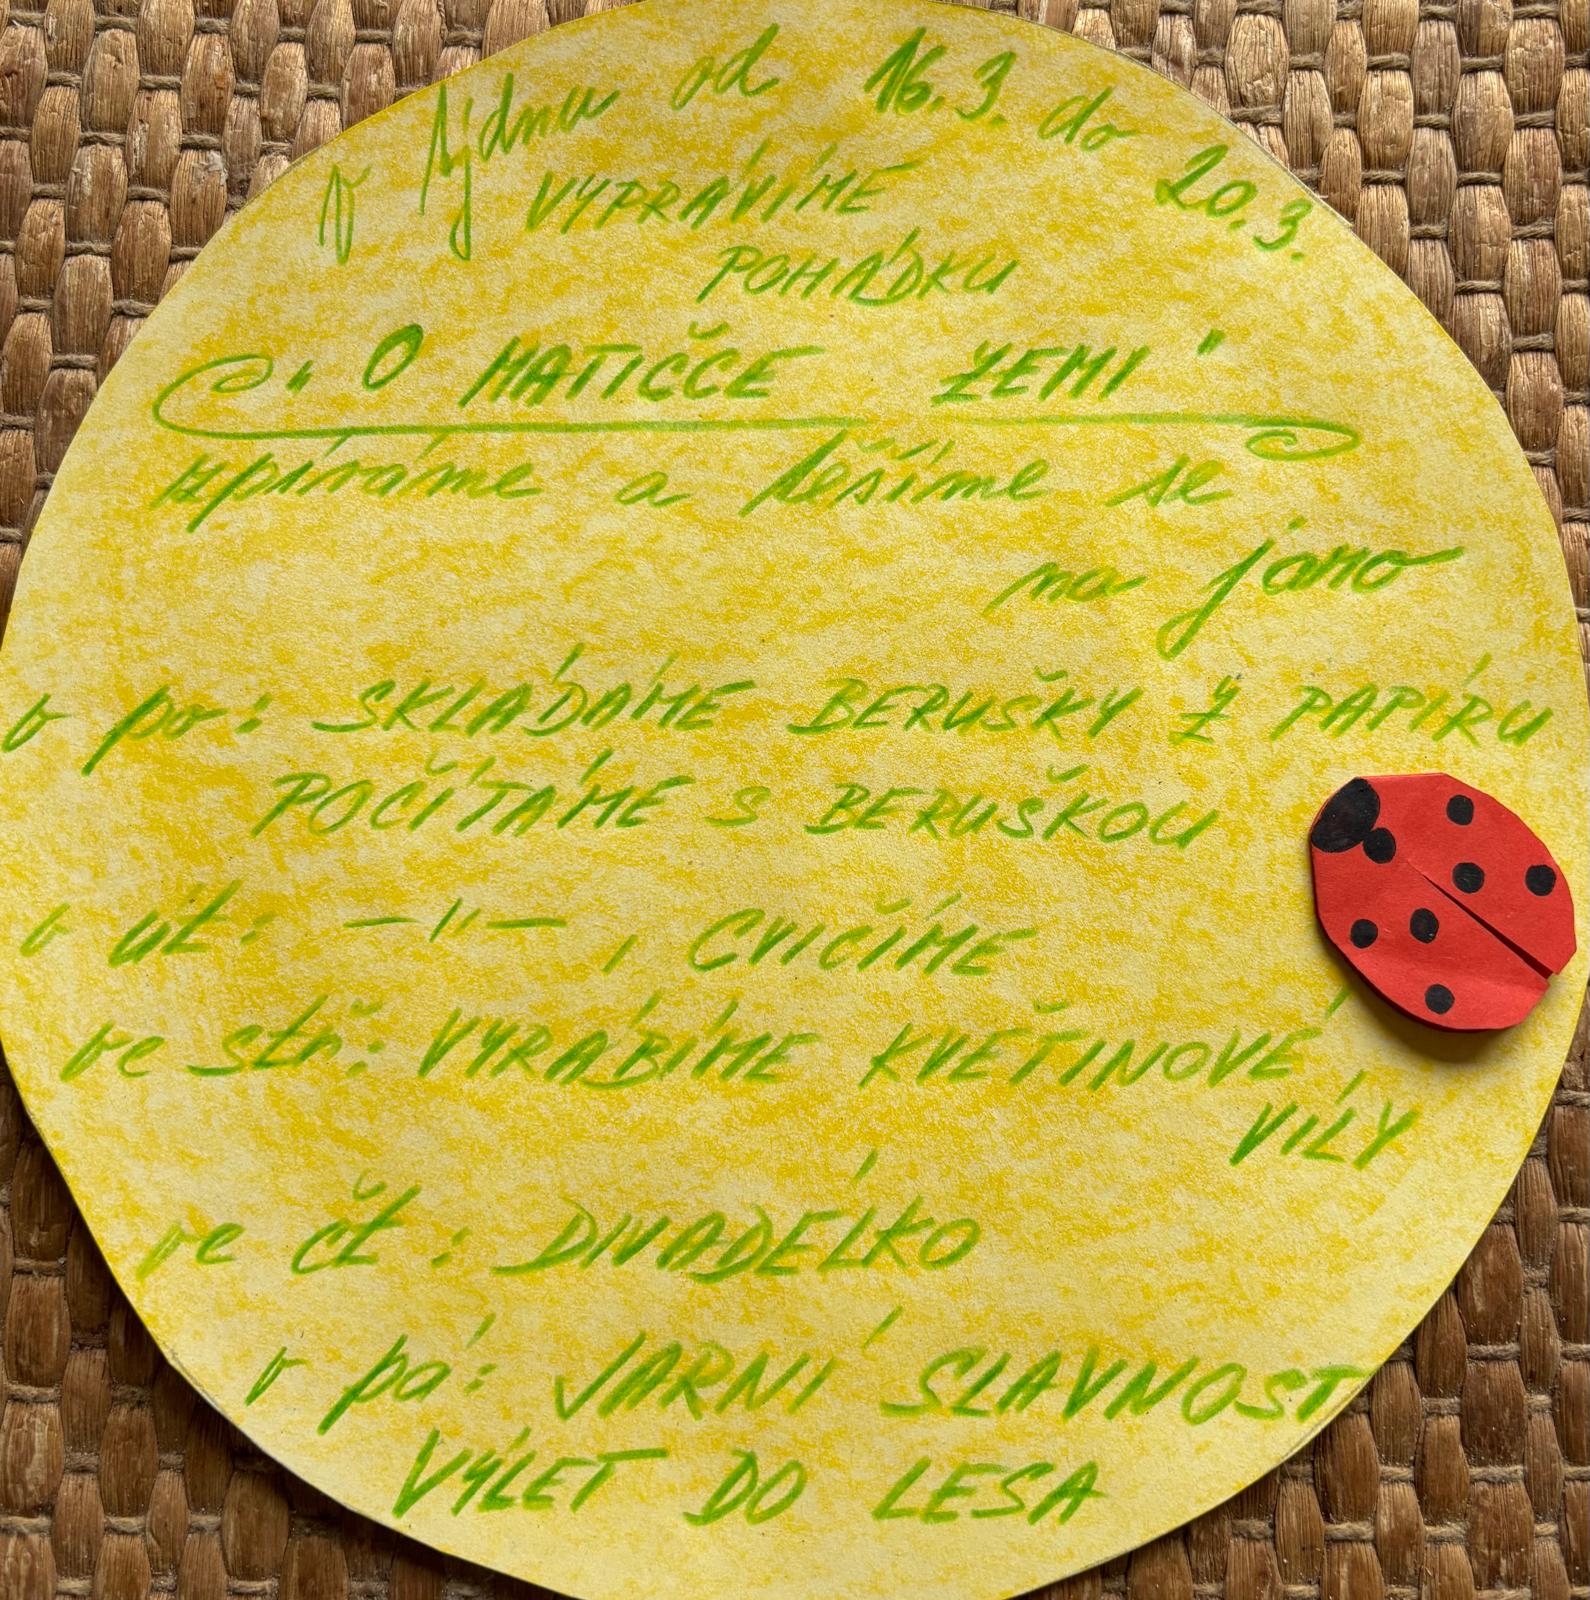 V týdnu od 16.3. do 20.3.
VYPRÁVÍME
POHÁDKU
„O MATIČCE ZEMI"
zpíváme a těšíme se
na jaro
v po: SKLÁDÁME BERUŠKY Z PAPÍRU
POČÍTÁME S BERUŠKOU
v út: —"—, CVIČÍME
ve stř: VYRÁBÍME KVĚTINOVÉ
VÍLY
ve čt: DIVADÉLKO
v pá: JARNÍ SLAVNOST
VÝLET DO LESA